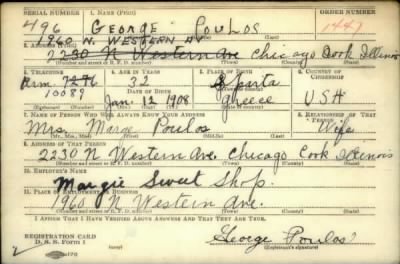 SERIAL NUMBER 1. NAME (Print) ORDER NUMBER
496 George Poulos 1447
1960 N. WESTERN AV
2. ADDRESS (Print)
2230 N Western Ave Chicago Cook Illinois
(Number and street or R. F. D. number) (Town) (County) (State)
3. TELEPHONE 4. AGE IN YEARS 5. PLACE OF BIRTH 6. COUNTRY OF CITIZENSHIP
Arm 7276 32 Sparta
10089 DATE OF BIRTH (Town or county)
Jan. 12 1908 Greece USA
(Exchange) (Number) (Mo.) (Day) (Yr.) (State or country)
7. NAME OF PERSON WHO WILL ALWAYS KNOW YOUR ADDRESS 8. RELATIONSHIP OF THAT PERSON
Mrs. Marge Poulos Wife
(Mr., Mrs., Miss) (First) (Middle) (Last)
9. ADDRESS OF THAT PERSON
2230 N Western Ave. Chicago Cook Illinois
(Number and street or R. F. D. number) (Town) (County) (State)
10. EMPLOYER'S NAME
Margie Sweet Shop.
11. PLACE OF EMPLOYMENT OR BUSINESS
1960 N. Western Ave.
(Number and street or R. F. D. number) (Town) (County) (State)
I AFFIRM THAT I HAVE VERIFIED ABOVE ANSWERS AND THAT THEY ARE TRUE.
REGISTRATION CARD
D. S. S. Form 1 George Poulos
(Registrant's signature)